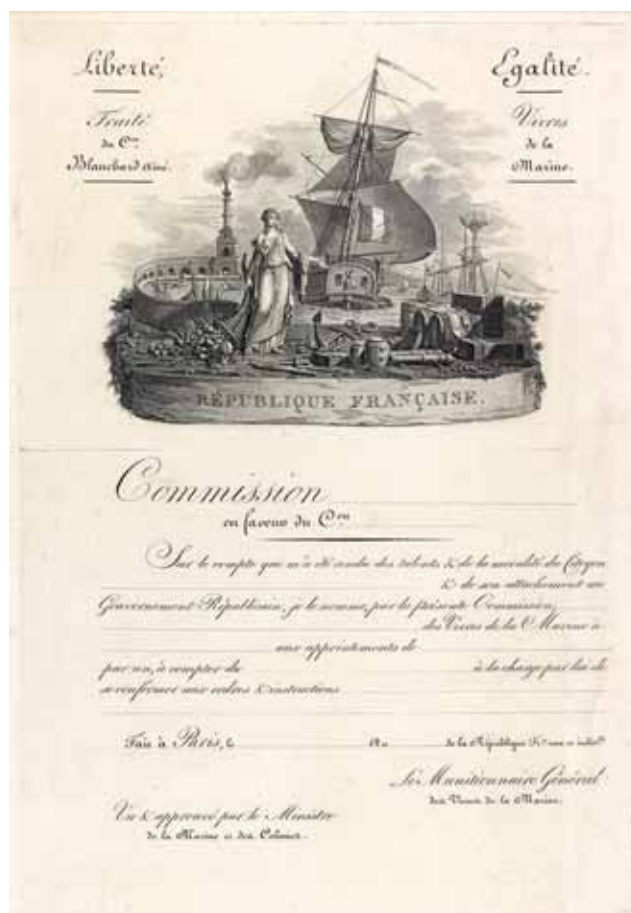 Liberté,
Egalité.
Traité
du C.en
Blanchard Ainé.
Vivres
de la
Marine.
RÉPUBLIQUE FRANÇAISE.
Commission
en faveur du C.en
Sur le compte que m'a été rendu des talents & de la moralité du Citoyen
& de son attachement au
Gouvernement Républicain, je le nomme, par la présente Commission,
des Vivres de la Marine à
aux appointements de
par an, à compter du
à la charge par lui de
se conformer aux ordres & instructions
Fait à Paris, le
de la République
Le Munitionnaire Général
des Vivres de la Marine.
Vu & approuvé par le Ministre
de la Marine et des Colonies.